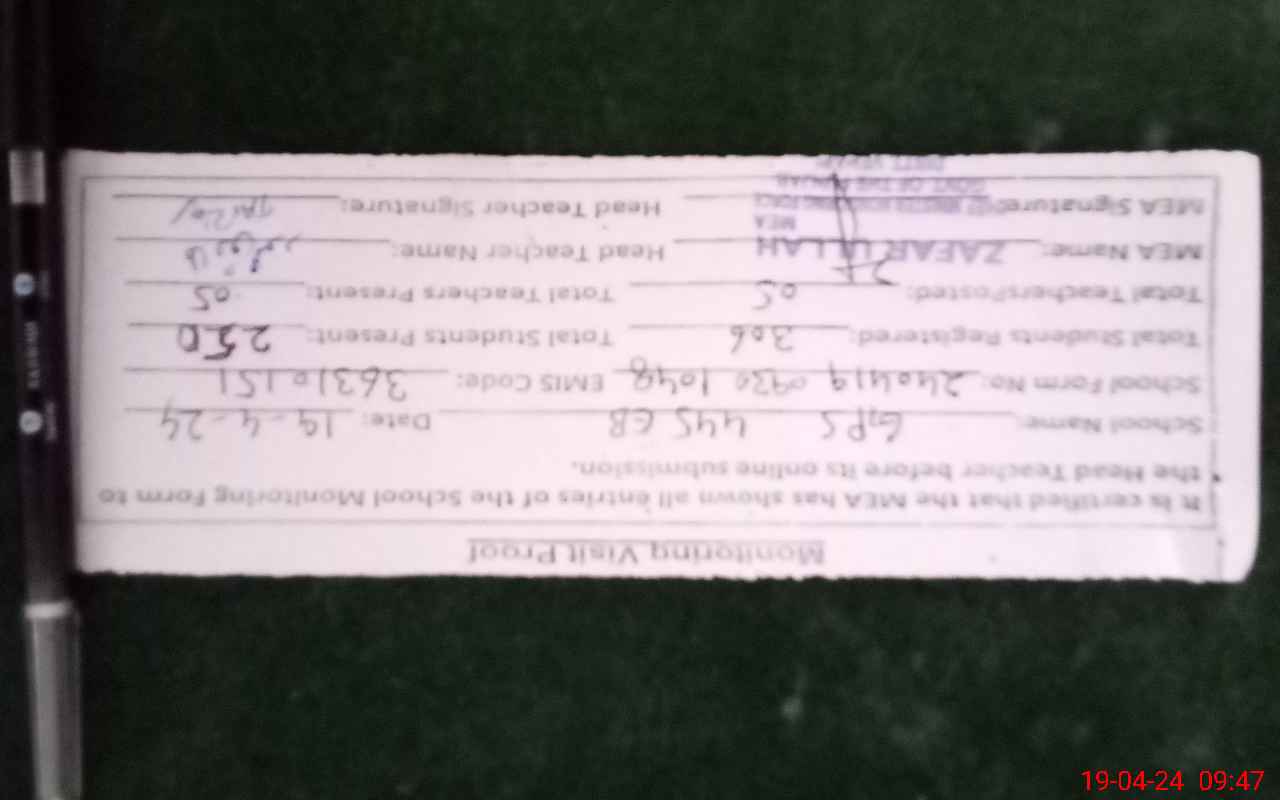 Monitoring Visit Proof
It is certified that the MEA has shown all entries of the School Monitoring Form to
the Head Teacher before its online submission.
School Name: GPS 445 EB Date: 19-4-24
School Form No: 240419 0930 1048 EMIS Code: 36310151
Total Students Registered: 306 Total Students Present: 250
Total Teachers Posted: 05 Total Teachers Present: 05
MEA Name: ZAFAR ULLAH Head Teacher Name:
MEA
MEA Signature: Head Teacher Signature:
GOVT. OF THE PUNJAB
19-04-24 09:47